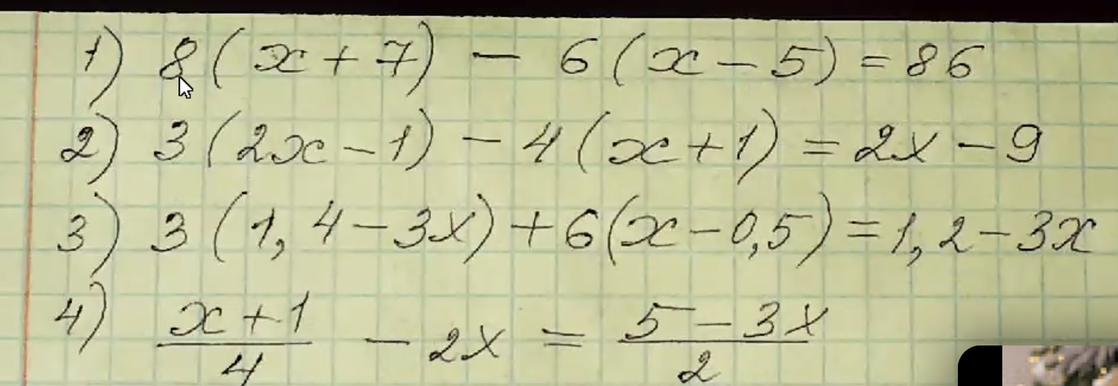 1) 8(x+7) - 6(x-5) = 86
2) 3(2x-1) - 4(x+1) = 2x-9
3) 3(1,4-3x)+6(x-0,5)=1,2-3x
4) (x+1)/4 - 2x = (5-3x)/2